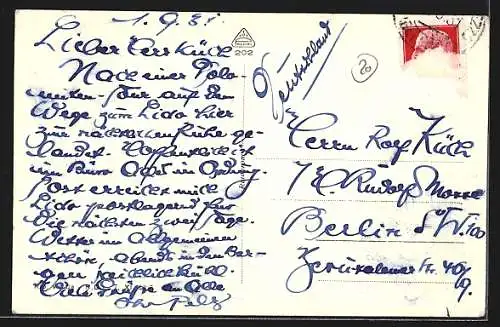 1. 9. 31
Lieber Herr Küch
Nach einer Dolo-
miten-Tour auf dem
Wege zum Lido hier
zur
gelandet. Hoffentlich ist
im Büro Alles in Ordng.
Post erreicht mich
Lido postlagernd nur
die nächsten zwei Tage.
Wetter im Allgemeinen
schön, abends in den Ber-
gen reichlich kühl.
Viele Grüsse an Alle
Ihr
202
Deutschland
20
Herrn Rolf Küch
i/Fa. Rudolf Mosse
Berlin SW 100
Jerusalemer Str. 46/
9.